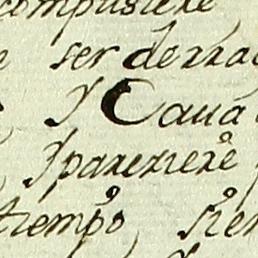 compusiere
ser derra
Y Caua
Ypareziere
tiempo, sien